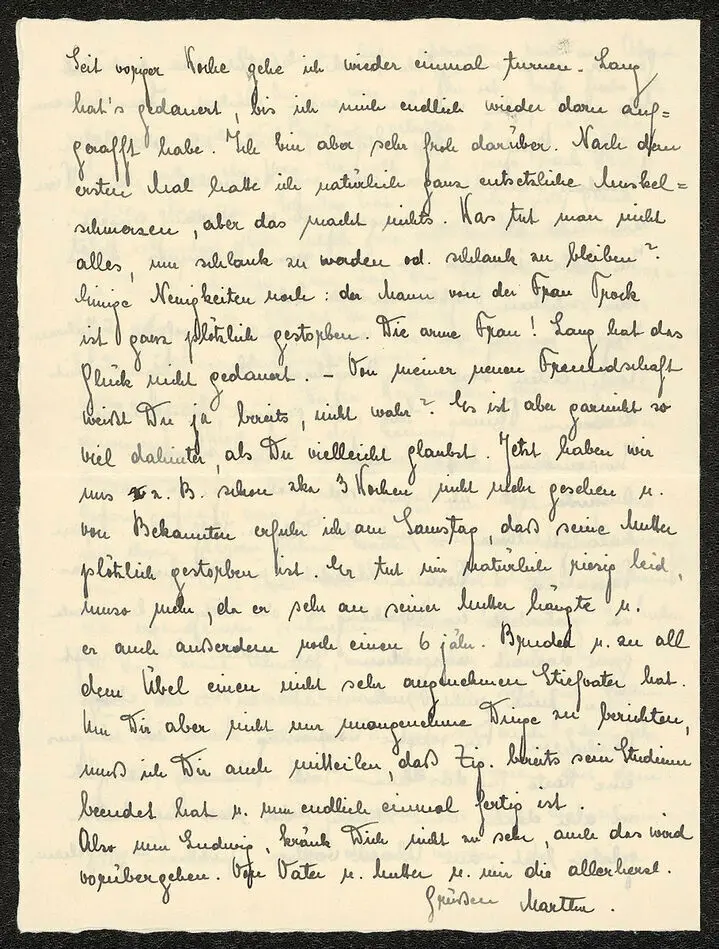 Seit voriger Woche gehe ich wieder einmal turnen. Lang
hat's gedauert, bis ich mich endlich wieder dazu auf=
gerafft habe. Ich bin aber sehr froh darüber. Nach dem
ersten Mal hatte ich natürlich ganz entsetzliche Muskel=
schmerzen, aber das macht nichts. Was tut man nicht
alles, um schlank zu werden od. schlank zu bleiben?
Einige Neuigkeiten noch: der Mann von der Frau Trock
ist ganz plötzlich gestorben. Die arme Frau! Lang hat das
Glück nicht gedauert. – Von meiner neuen Freundschaft
weißt Du ja bereits, nicht wahr? Es ist aber garnicht so
viel dahinter, als Du vielleicht glaubst. Jetzt haben wir
uns z. B. schon zka 3 Wochen nicht mehr gesehen u.
von Bekannten erfuhr ich am Samstag, daß seine Mutter
plötzlich gestorben ist. Er tut mir natürlich riesig leid,
umso mehr, da er sehr an seiner Mutter hängte u.
er auch außerdem noch einen 6 jähr. Bruder u. zu all
dem Übel einen nicht sehr angenehmen Stiefvater hat.
Um Dir aber nicht nur unangenehme Dinge zu berichten,
muß ich Dir auch mitteilen, daß Zig. bereits sein Studium
beendet hat u. nun endlich einmal fertig ist.
Also nun Ludwig, kränk Dich nicht zu sehr, auch das wird
vorübergehen. Von Vater u. Mutter u. mir die allerherzl.
Grüßen Martha.